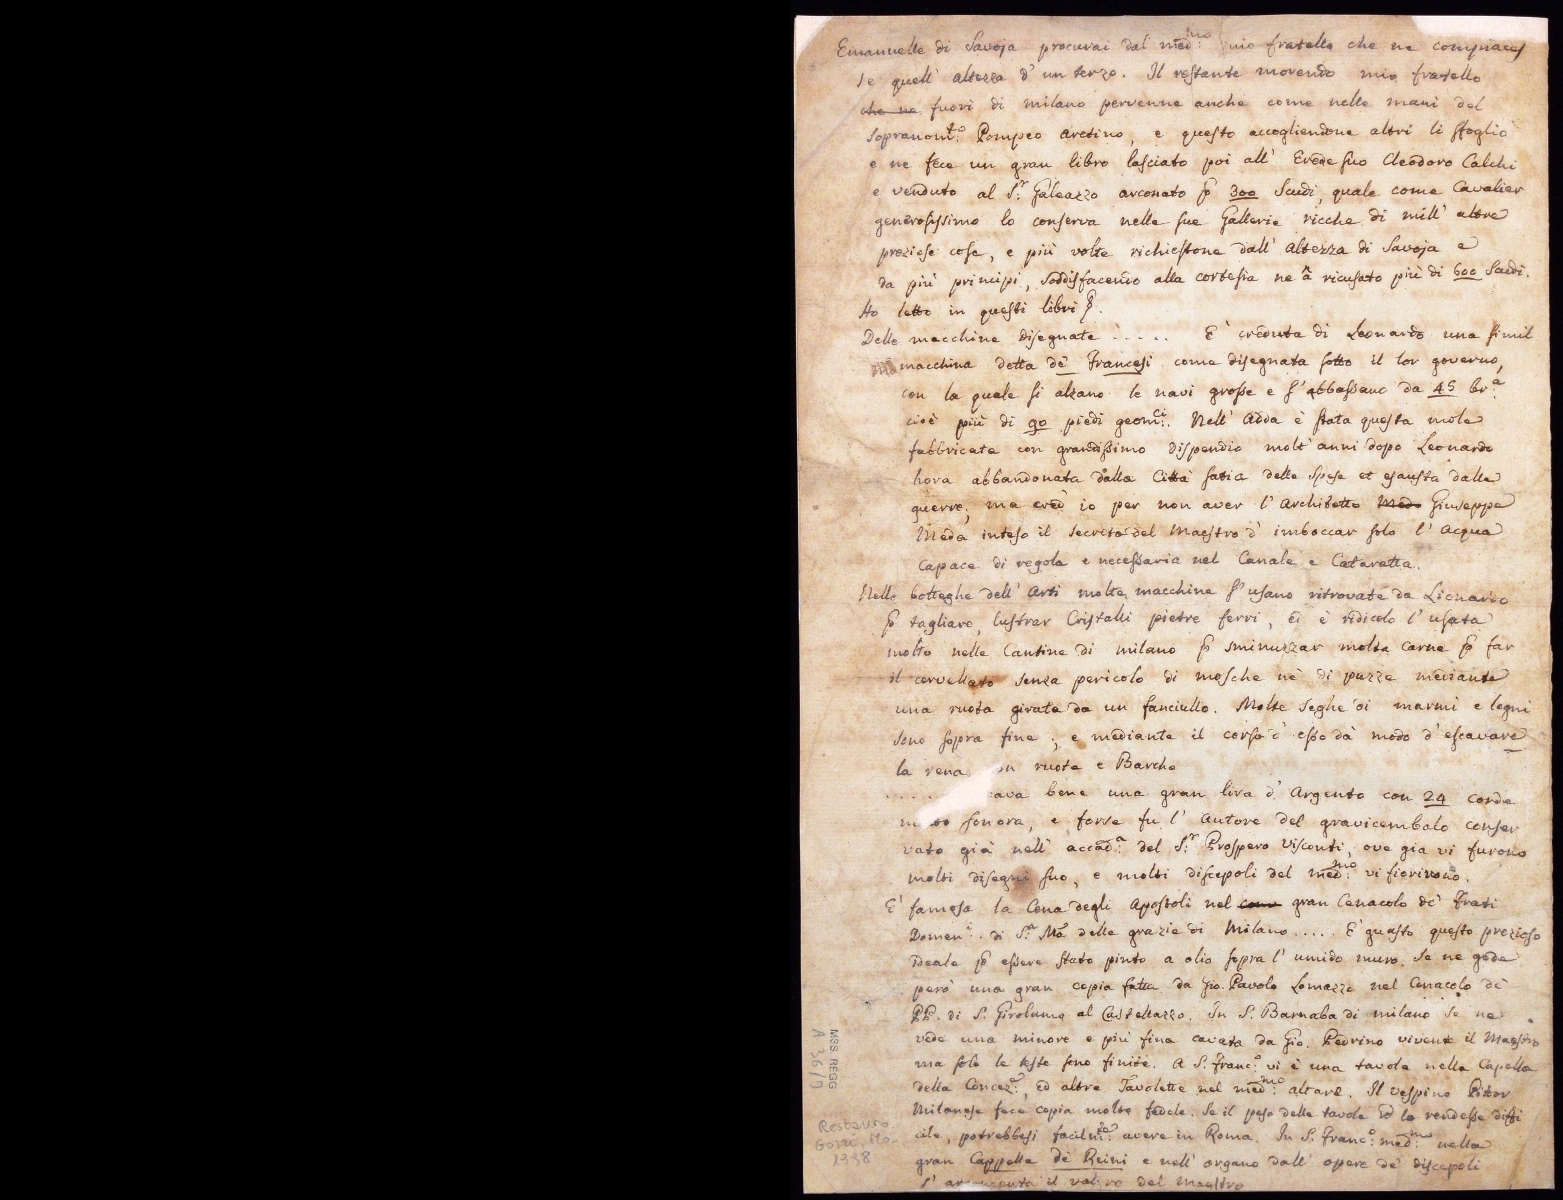 Emanuelle di Savoja procurai dal med:mo mio fratello che ne compiacess
se quell' altezza d' un terzo. Il restante morendo mio fratello
che ne fuori di milano pervenne anche come nelle mani del
sopranomto: Pompeo aretino, e questo accogliendone altri li sfogliò
e ne fece un gran libro lasciato poi all' Erede suo Cleodoro Calchi
e venduto al S:r Galeazzo arconato p 300 Scudi, quale come Cavalier
generosissimo lo conserva nelle sue Gallerie ricche di mill' altre
preziose cose, e più volte richiestone dall' altezza di Savoja e
da più principi, soddisfacendo alla cortesia ne à ricusato più di 600 Scudi.
Ho letto in questi libri p.
Delle macchine disegnate ..... E' creduta di Leonardo una simil
macchina detta de Francesi come disegnata sotto il lor governo,
con la quale si alzano le navi grosse e s' abbassano da 45 br:a
cioè più di 90 piedi geom:ci. Nell' Adda è stata questa mole
fabbricata con grandissimo dispendio molt' anni dopo Leonardo
hora abbandonata dalla Città satia delle spese et esausta dalle
guerre; ma cred' io per non aver l' Architetto Meda Giuseppe
Meda inteso il secreto del Maestro d' imboccar solo l' acqua
capace di regola e necessaria nel Canale e Cataratta.
Nelle botteghe dell' Arti molte macchine s' usano ritrovate da Lionardo
p tagliare, lustrar Cristalli pietre ferri, ed è ridicolo l' usata
molto nelle Cantine di milano p sminuzzar molta carne p far
il cervellato senza pericolo di mosche nè di puzze mediante
una ruota girata da un fanciullo. Molte seghe di marmi e legni
sono sopra fine; e mediante il corso d' esse dà modo d' escavare
la rena on ruote e Barche
..... cava bene una gran lira d' Argento con 24 corde
molto sonora, e forse fu l' autore del gravicembalo conser
vato già nell' accad:a del S:r Prospero Visconti, ove gia vi furono
molti disegni suo, e molti discepoli del med:mo vi fiorirono.
E' famosa la Cena degli Apostoli nel gran Cenacolo de' Frati
Domeni:. di S:a Ma delle grazie di Milano ..... E' guasto questo prezioso
ideale p essere stato pinto a olio sopra l' umido muro. Se ne gode
però una gran copia fatta da Gio. Pavolo Lomazzo nel Cenacolo de'
PP. di S. Girolamo al Castellazzo. In S. Barnaba di milano se ne
vede una minore e più fina cavata da Gio. Pedrino vivente il Maestro
ma solo le teste sono finite. A S. Franc:o vi è una tavola nella Capella
della Concez:e, ed altre Tavolette nel med:mo altare. Il vespino Pittor
Milanese fece copia molto fedele. Se il peso delle tavole nō lo rendesse diffi
cile, potrebbesi facilm:te avere in Roma. In S. Franc:o med:mo nella
gran Cappella de Reini e nell' organo dall' opere de' discepoli
s' argumenta il valore del Maestro
MSS. REGG
A 36/9
Restauro
1998